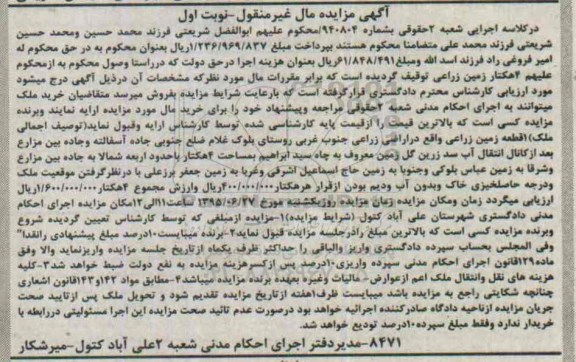 آگهی مزایده مال غیرمنقول-نوبت اول
درکلاسه اجرایی شعبه ۲حقوقی بشماره ۹۴۰۸۰۴/محکوم علیهم ابوالفضل شریعتی فرزند محمد حسین ومحمد حسین
شریعتی فرزند محمد علی متضامنا محکوم هستند بپرداخت مبلغ ۱/۲۳۶/۹۶۹/۸۳۷ریال بعنوان محکوم به در حق محکوم له
امیر فروغی راد فرزند اسد الله ومبلغ۶۱/۸۴۸/۴۹۱ریال بعنوان هزینه اجرا درحق دولت که درراستا وصول محکوم به ازمحکوم
علیهم ۴هکتار زمین زراعی توقیف گردیده است که برابر مقررات مال مورد نظرکه مشخصات آن درذیل آگهی درج میشود
مورد ارزیابی کارشناس محترم دادگستری قرارگرفته است که بارعایت شرایط مزایده بفروش میرسد متقاضیان خرید ملک
میتوانند به اجرای احکام مدنی شعبه ۲حقوقی مراجعه وپیشنهاد خود را برای خرید مال مورد مزایده ارایه نمایند وبرنده
مزایده کسی است که بالاترین قیمت را ازقیمت پایه کارشناسی شده توسط کارشناس ارایه وقبول نماید(توصیف اجمالی
ملک)۱قطعه زمین زراعی واقع دراراضی زراعی جنوب غربی روستای بلوک غلام ضلع جنوبی جاده آسفالته وجاده بین مزارع
بعد ازکانال انتقال آب سد زرین گل زمین معروف به چاه سید ابراهیم بمساحت ۴هکتار باحدود اربعه شمالا به جاده بین مزارع
وشرقا به زمین عباس بلوکی وجنوبا به زمین حاج اسماعیل اشرفی وغربا به زمین جعفر برزعلی با درنظرگرفتن موقعیت ملک
ودرجه حاصلخیزی خاک وبدون آب ودیم بودن ازقرار هرهکتار۴۰۰/۰۰۰/۰۰۰ریال وارزش مجموع ۴هکتار۱/۶۰۰/۰۰۰/۰۰۰ریال
ارزیابی میگردد زمان ومکان مزایده زمان مزایده روزیکشنبه مورخ ۱۳۹۵/۰۶/۲۷ ساعت۱۱الی۱۲مکان مزایده اجرای احکام
مدنی دادگستری شهرستان علی آباد کتول (شرایط مزایده)۱-مزایده ازمبلغی که توسط کارشناس تعیین گردیده شروع
وبرنده مزایده کسی است که بالاترین مبلغ رادرجلسه مزایده قبول نماید۲-برنده میبایست۱۰درصد مبلغ پیشنهادی رانقدا"
وفی المجلس بحساب سپرده دادگستری واریز والباقی را حداکثر ظرف یکماه ازتاریخ جلسه مزایده واریزنماید والا وفق
ماده۱۲۹قانون اجرای احکام مدنی سپرده واریزی۱۰درصد پس ازکسرهزینه مزایده به نفع دولت ضبط خواهد شد۳-کلیه
هزینه های نقل وانتقال ملک اعم ازعوارض-مالیات وغیره بعهده برنده مزایده میباشد۴-مطابق مواد ۱۴۲و۱۴۳قانون اشعاری
چنانچه شکایتی راجع به مزایده باشد میبایست ظرف۱هفته ازتاریخ مزایده تقدیم شود و تحویل ملک پس ازتایید صحت
جریان مزایده ازناحیه دادگاه صادرکننده اجرائیه خواهد بود درصورت عدم تائید صحت مزایده این اجرا مسئولیتی دررابطه با
خریدار ندارد وفقط مبلغ سپرده۱۰درصد تودیع خواهد شد.
۸۴۷۱-مدیردفتر اجرای احکام مدنی شعبه ۲علی آباد کتول-میرشکار